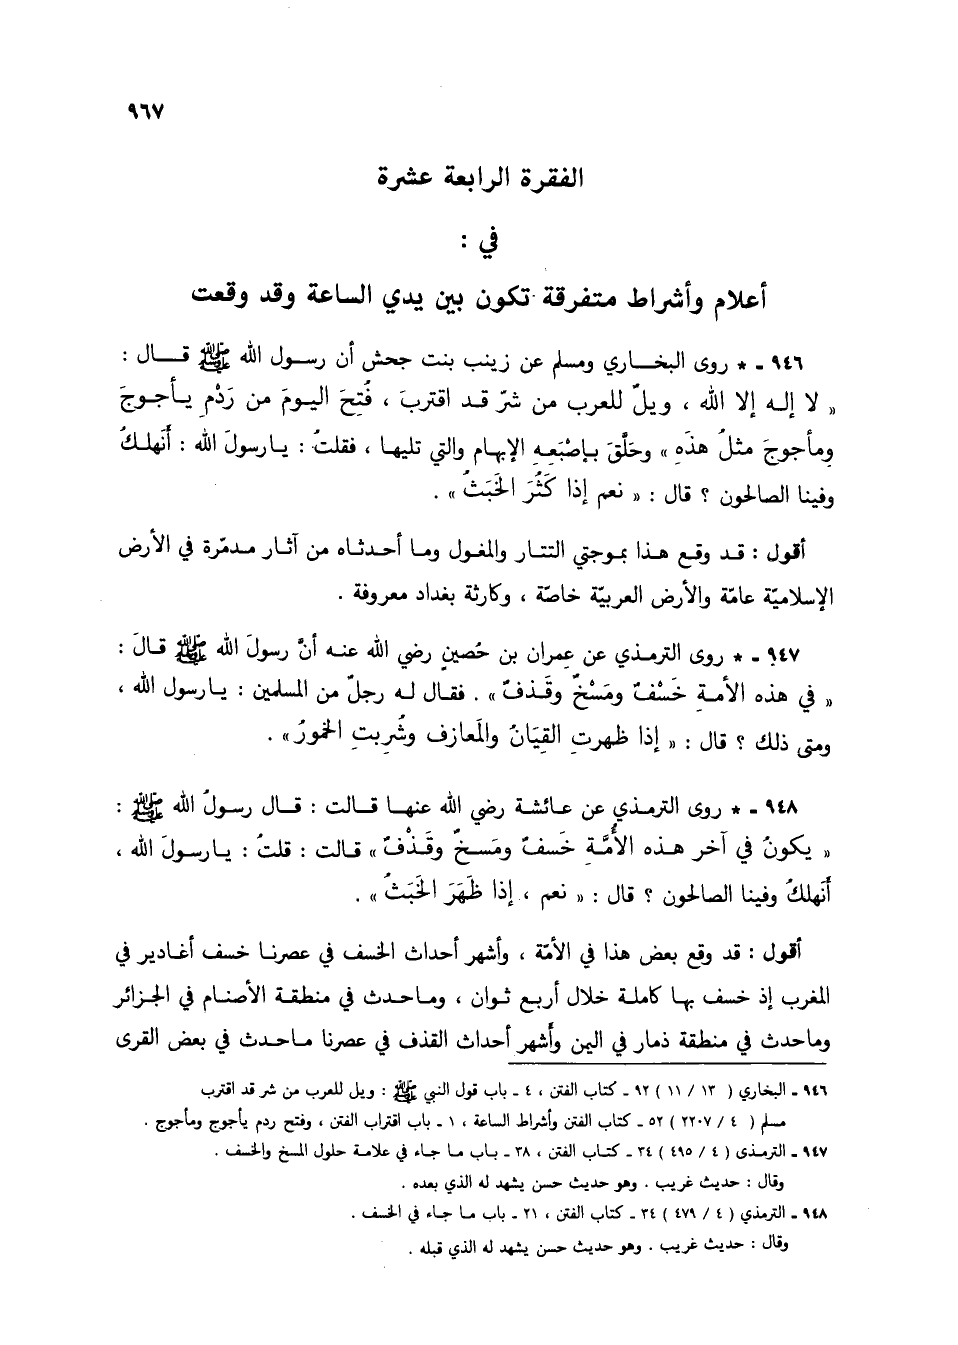 ٩٦٧
الفقرة الرابعة عشرة
في :
أعلام وأشراط متفرقة تكون بين يدي الساعة وقد وقعت
٩٤٦ - * روى البخاري ومسلم عن زينب بنت جحش أن رسول الله ﷺ قال :
« لا إله إلا الله ، ويلٌ للعرب من شرّ قد اقتربَ ، فُتحَ اليومَ من رَدْمِ يأجوجَ
ومأجوجَ مثلُ هذَهِ » وحَلَّقَ بإصْبَعِهِ الإبهام والتي تليها ، فقلتُ : يارسولَ الله : أَنهلكُ
وفينا الصالحون ؟ قال : « نعم إذا كَثُرَ الخَبَثُ » .
أقول : قد وقع هذا بموجتي التتار والمغول وما أحدثاه من آثار مدمّرة في الأرض
الإسلاميّة عامّة والأرض العربيّة خاصّة ، وكارثة بغداد معروفة .
٩٤٧ - * روى الترمذي عن عِمران بن حُصينٍ رضي الله عنه أنَّ رسولَ الله ﷺ قالَ :
« في هذه الأمةِ خَسْفٌ ومَسْخٌ وقَذفٌ » . فقال له رجلٌ من المسلمين : يارسول الله ،
ومتى ذلك ؟ قال : « إذا ظهرتِ القِيَانُ والمَعازِف وشُربتِ الخمورُ » .
٩٤٨ - * روى الترمذي عن عائشة رضي الله عنها قالت : قال رسولُ الله ﷺ :
« يكونُ في آخر هذه الأُمَّةِ خَسفٌ ومَسخٌ وقَذْفٌ » قالت : قلتُ : يارسولَ الله ،
أَنهلكُ وفينا الصالحون ؟ قال : « نعم ، إذا ظَهَرَ الخَبَثُ » .
أقول : قد وقع بعض هذا في الأمّة ، وأشهر أحداث الخسف في عصرنا خسف أغادير في
المغرب إذ خسف بها كاملة خلال أربع ثوان ، وماحدث في منطقة الأصنام في الجزائر
وماحدث في منطقة ذمار في اليمن وأشهر أحداث القذف في عصرنا ماحدث في بعض القرى
٩٤٦ - البخاري ( ١٣ / ١١ ) ٩٢ - كتاب الفتن ، ٤ - باب قول النبي ﷺ : ويل للعرب من شر قد اقترب
مسلم ( ٤ / ٢٢٠٧ ) ٥٢ - كتاب الفتن وأشراط الساعة ، ١ - باب اقتراب الفتن ، وفتح ردم يأجوج ومأجوج .
٩٤٧ - الترمذى ( ٤ / ٤٩٥ ) ٣٤ - كتاب الفتن ، ٣٨ - باب ما جاء في علامة حلول المسخ والخسف .
وقال : حديث غريب . وهو حديث حسن يشهد له الذي بعده .
٩٤٨ - الترمذي ( ٤ / ٤٧٩ ) ٣٤ - كتاب الفتن ، ٢١ - باب ما جاء في الخسف .
وقال : حديث غريب . وهو حديث حسن يشهد له الذي قبله .